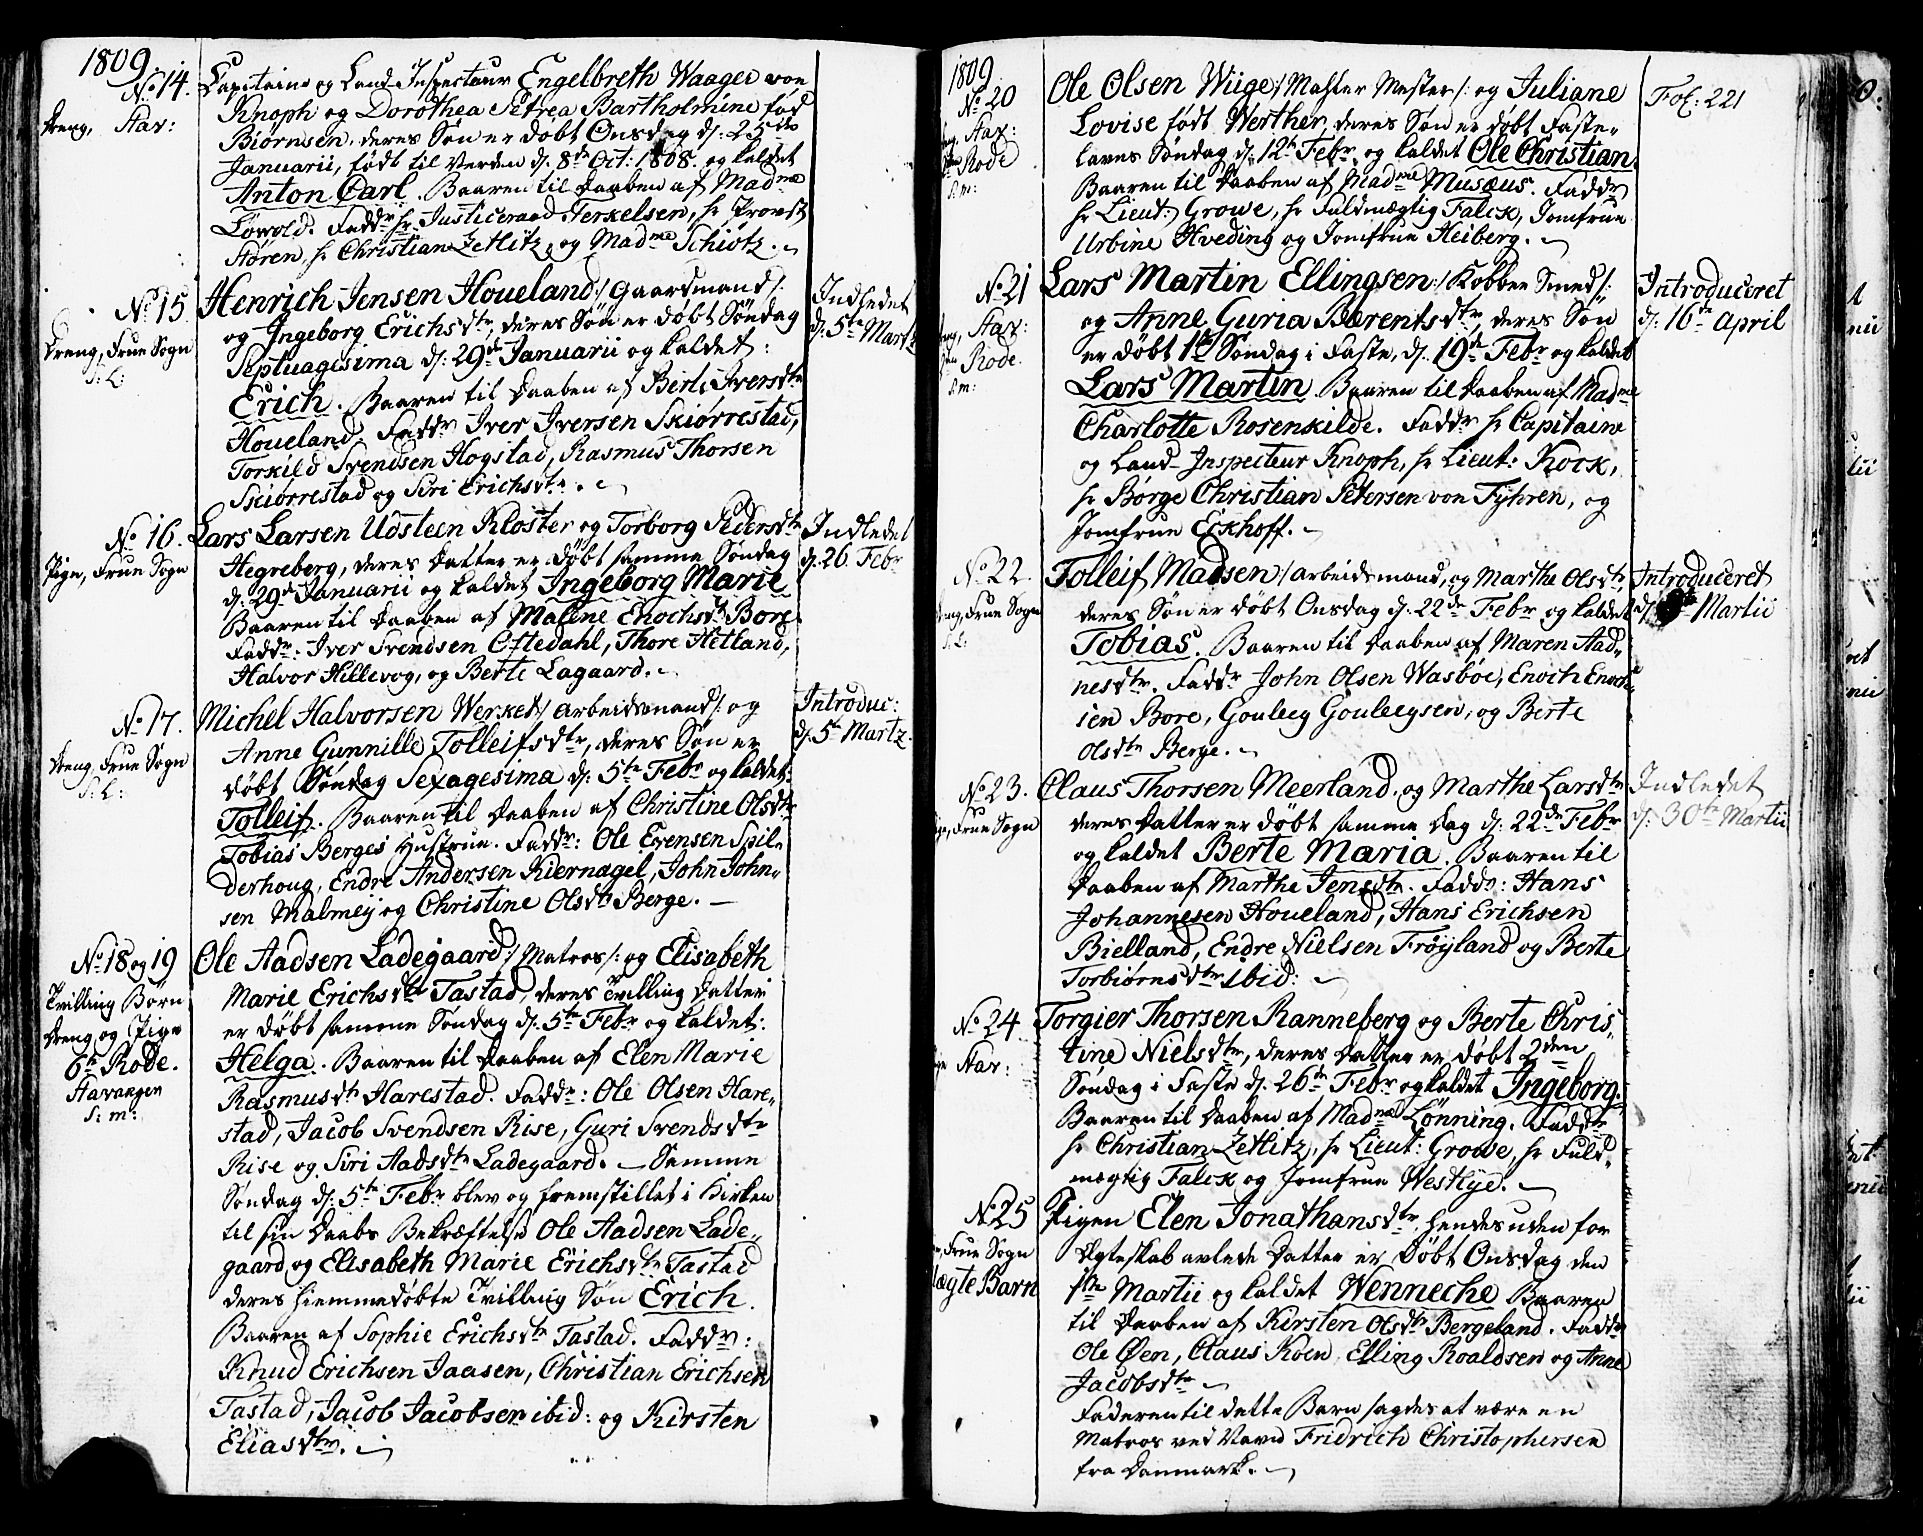 1809.
No 14.
Dreng, Stav:
Capitaine og Land-Inspecteur Engelbreth Waager von
Knoph og Dorothea Petrea Bartholonine fød
Biørnsen, deres Søn er døbt Onsdag d: 25de
Januarii, født til Verden d. 8de Oct: 1808. og kaldet
Anton Carl. Baaren til Daaben af Madme
Löwold. Faddr hr Justiceraad Terkelsen, hr Provst
Støren, hr Christian Zetlitz, og Madme Schiøtz.
No 15
Dreng, Frue Sogn
S: L:
Henrich Jensen Houeland /: Gaardmand :/
og Ingeborg Erichsdtr, deres Søn er døbt Søndag
Septuagesima d: 29de Januarii og kaldet:
Erich. Baaren til Daaben af Berte Iversdtr
Houeland. Faddr Iver Iversen Skiørrestad,
Torkild Svendsen Hogstad, Rasmus Thorsen
Skiørrestad og Siri Erichsdtr.
Indledet
d: 5te Martz
No 16.
Pige, Frue Sogn
Lars Larsen Udsteen Kloster og Torborg Pedersdtr
Hegreberg, deres Datter er døbt samme Søndag
d: 29de Januarii og kaldet Ingeborg Marie
Baaren til Daaben af Malene Enochsdtr Bore
Faddr. Iver Svendsen Eltedahl, Thore Hetland,
Halvor Hillevog, og Berte Lagaard.
Indledet
d: 26. Febr
No 17.
Dreng, Frue Sogn
S: L:
Michel Halvorsen Werket /: Arbeidsmand :/ og
Anne Gunnille Tolleifsdtr, deres Søn er
døbt Søndag Sexagesima d: 5te Febr og kaldet:
Tolleif. Baaren til Daaben af Christine Olsdtr
Tobias Berges Hustrue. Faddr: Ole Evensen Spil-
derhoug, Endre Andersen Kiernagel, John John-
sen Malmeÿ og Christine Olsdtr Berge.
Introduc:
d: 5te Martz.
No 18 og 19
Tvilling Børn
Dreng og Pige
6te Rode.
Stavanger
S: m:
Ole Aadsen Ladegaard /: Matros :/ og Elisabeth
Marie Erichsdtr Tastad, deres Tvilling Datter
er døbt samme Søndag d: 5te Febr og kaldet:
Helga. Baaren til Daaben af Elen Marie
Rasmusdtr Harestad. Faddr: Ole Olsen Hare-
stad, Jacob Svendsen Rise, Guri Svendsdtr
Rise og Siri Aadsdtr Ladegaard. – Samme
Søndag d: 5te Febr blev og fremstillet i Kirken
til sin Daabs Bekræftelse Ole Aadsen Lade-
gaard og Elisabeth Marie Erichsdtr Tastad
deres hiemmedøbte Tvilling Søn Erich.
Baaren af Sophie Erichsdtr Tastad. Faddr:
Knud Erichsen Jaasen, Christian Erichsen
Tastad, Jacob Jacobsen ibid: og Kirsten
Eliasdtr.
1809
No 20
Stav:
Rode
S: m:
Ole Olsen Wiige /: Mahler Mester :/ og Juliane
Lovise født Werther, deres Søn er døbt Faste-
lavns Søndag d: 12te Febr og kaldet Ole Christian.
Baaren til Daaben af Madme Musæus. Faddr
hr Lieut: Growe, hr Fuldmægtig Falck, Jomfrue
Urbine Hveding og Jomfrue Heiberg.
Fol: 221
No 21
Stav:
Rode.
S: m:
Lars Martin Ellingsen /: Kobber Smed :/
og Anne Guria Bærentsdtr, deres Søn
er døbt 1ste Søndag i Faste, d: 19de Febr og kaldet
Lars Martin. Baaren til Daaben af Madme
Charlotte Rosenkilde. Faddr hr Capitaine
og Land-Inspecteur Knoph, hr Lieut: Kock,
hr Børge Christian Petersen von Fyhren, og
Jomfrue Eckhoff.
Introduceret
d: 16de April
No 22.
Dreng, Frue Sogn
S: L:
Tolleif Madsen /: Arbeidsmand, og Marthe Olsdtr,
deres Søn er døbt Onsdag d: 22de Febr og kaldet
Tobias. Baaren til Daaben af Maren Aad-
nesdtr. Faddr John Olsen Wasbøe, Enoch Enoch-
sen Bore, Gouleeg Gouleegsen, og Berte
Olsdtr Berge.
Introduceret
d: Martii
No 23.
Frue Sogn
Claus Thorsen Meerland, og Marthe Larsdtr
deres Datter er døbt samme Dag d: 22de Febr
og kaldet Berte Maria. Baaren til
Daaben af Marthe Jensdtr. Faddr: Hans
Johannesen Houeland, Hans Erichsen
Bielland, Endre Nielsen Frøyland og Berte
Torbiørnsdtr ibid:
Indledet
d: 30te Martii
No 24.
Stav:
Torgier Thorsen Ranneberg og Berte Chris-
tine Nielsdtr, deres Datter er døbt 2den
Søndag i Faste d: 26de Febr og kaldet Ingeborg.
Baaren til Daaben af Madme Lönning. Faddr
hr Christian Zetlitz, hr Lieut: Growe, hr Fuld-
mægtig Falck og Jomfrue Westlye.
No 25
Frue Sogn
ægte Barn
Pigen Elen Jonathansdtr, hendes uden for
Ægteskab avlede Datter er døbt Onsdag den
1ste Martii og kaldet Wenneche Baaren
til Daaben af Kirsten Olsdtr Bergeland. Faddr
Ole Øen, Claus Koen, Elling Roaldsen og Anne
Jacobsdtr
Faderen til dette Barn sagdes at være en
Matros ved Navn Fridrich Christophersen
fra Danmark.